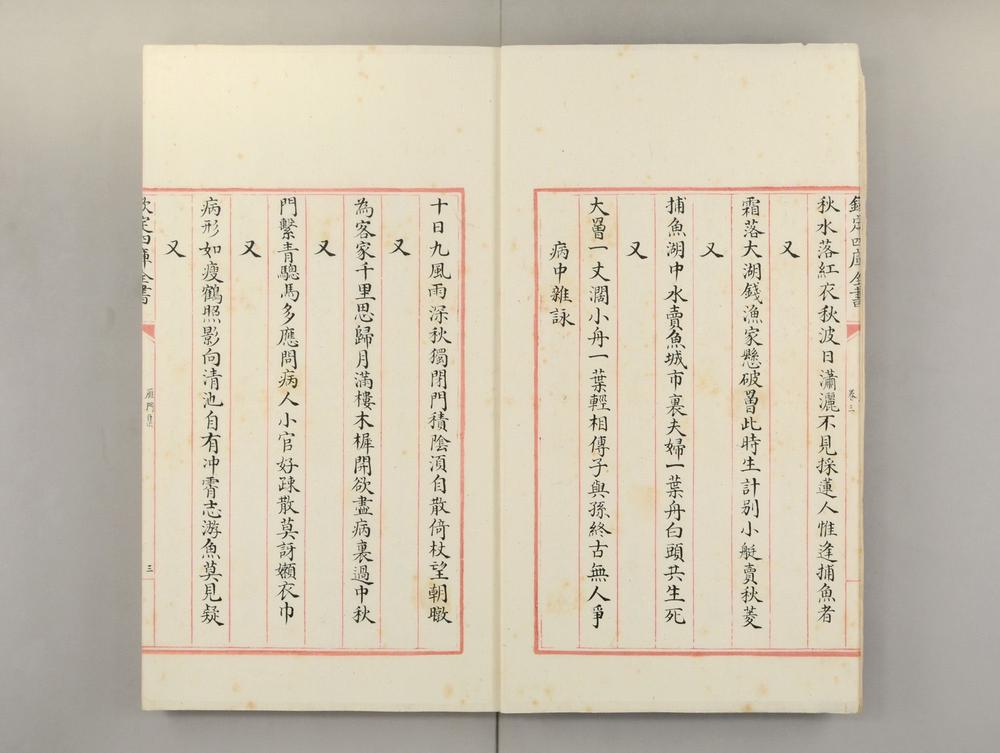 欽定四庫全書
卷三
秋水落紅衣秋波日瀟灑不見採蓮人惟逢捕魚者
又
霜落大湖錢漁家懸破罾此時生計别小艇賣秋菱
又
捕魚湖中水賣魚城市裏夫婦一葉舟白頭共生死
又
大罾一丈濶小舟一葉輕相傳子與孫終古無人爭
病中雜詠
十日九風雨深秋獨閉門積陰湏自散倚杖望朝暾
又
為客家千里思歸月滿樓木樨開欲盡病裏過中秋
又
門繫青驄馬多應問病人小官好疎散莫訝嬾衣巾
又
病形如瘦鶴照影向清池自有冲霄志游魚莫見疑
又
欽定四庫全書
雁門集
三